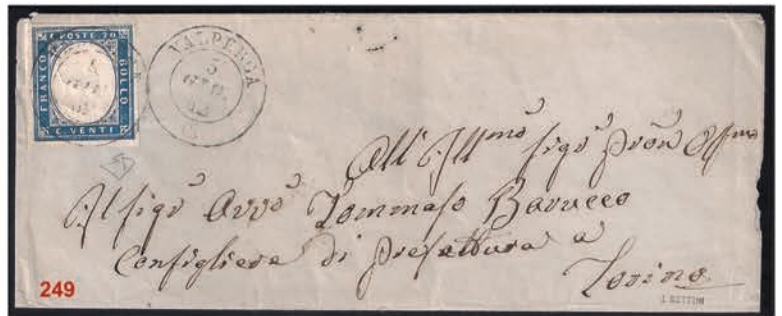 C. POSTE 20
FRANCO
BOLLO
C. VENTI
VALPERGA
5
All' Ill.mo Sig.r Pròn Off.mo
Il Sig.r Avv.o Tommaso Barucco
Consigliere di Prefettura a
Torino
249